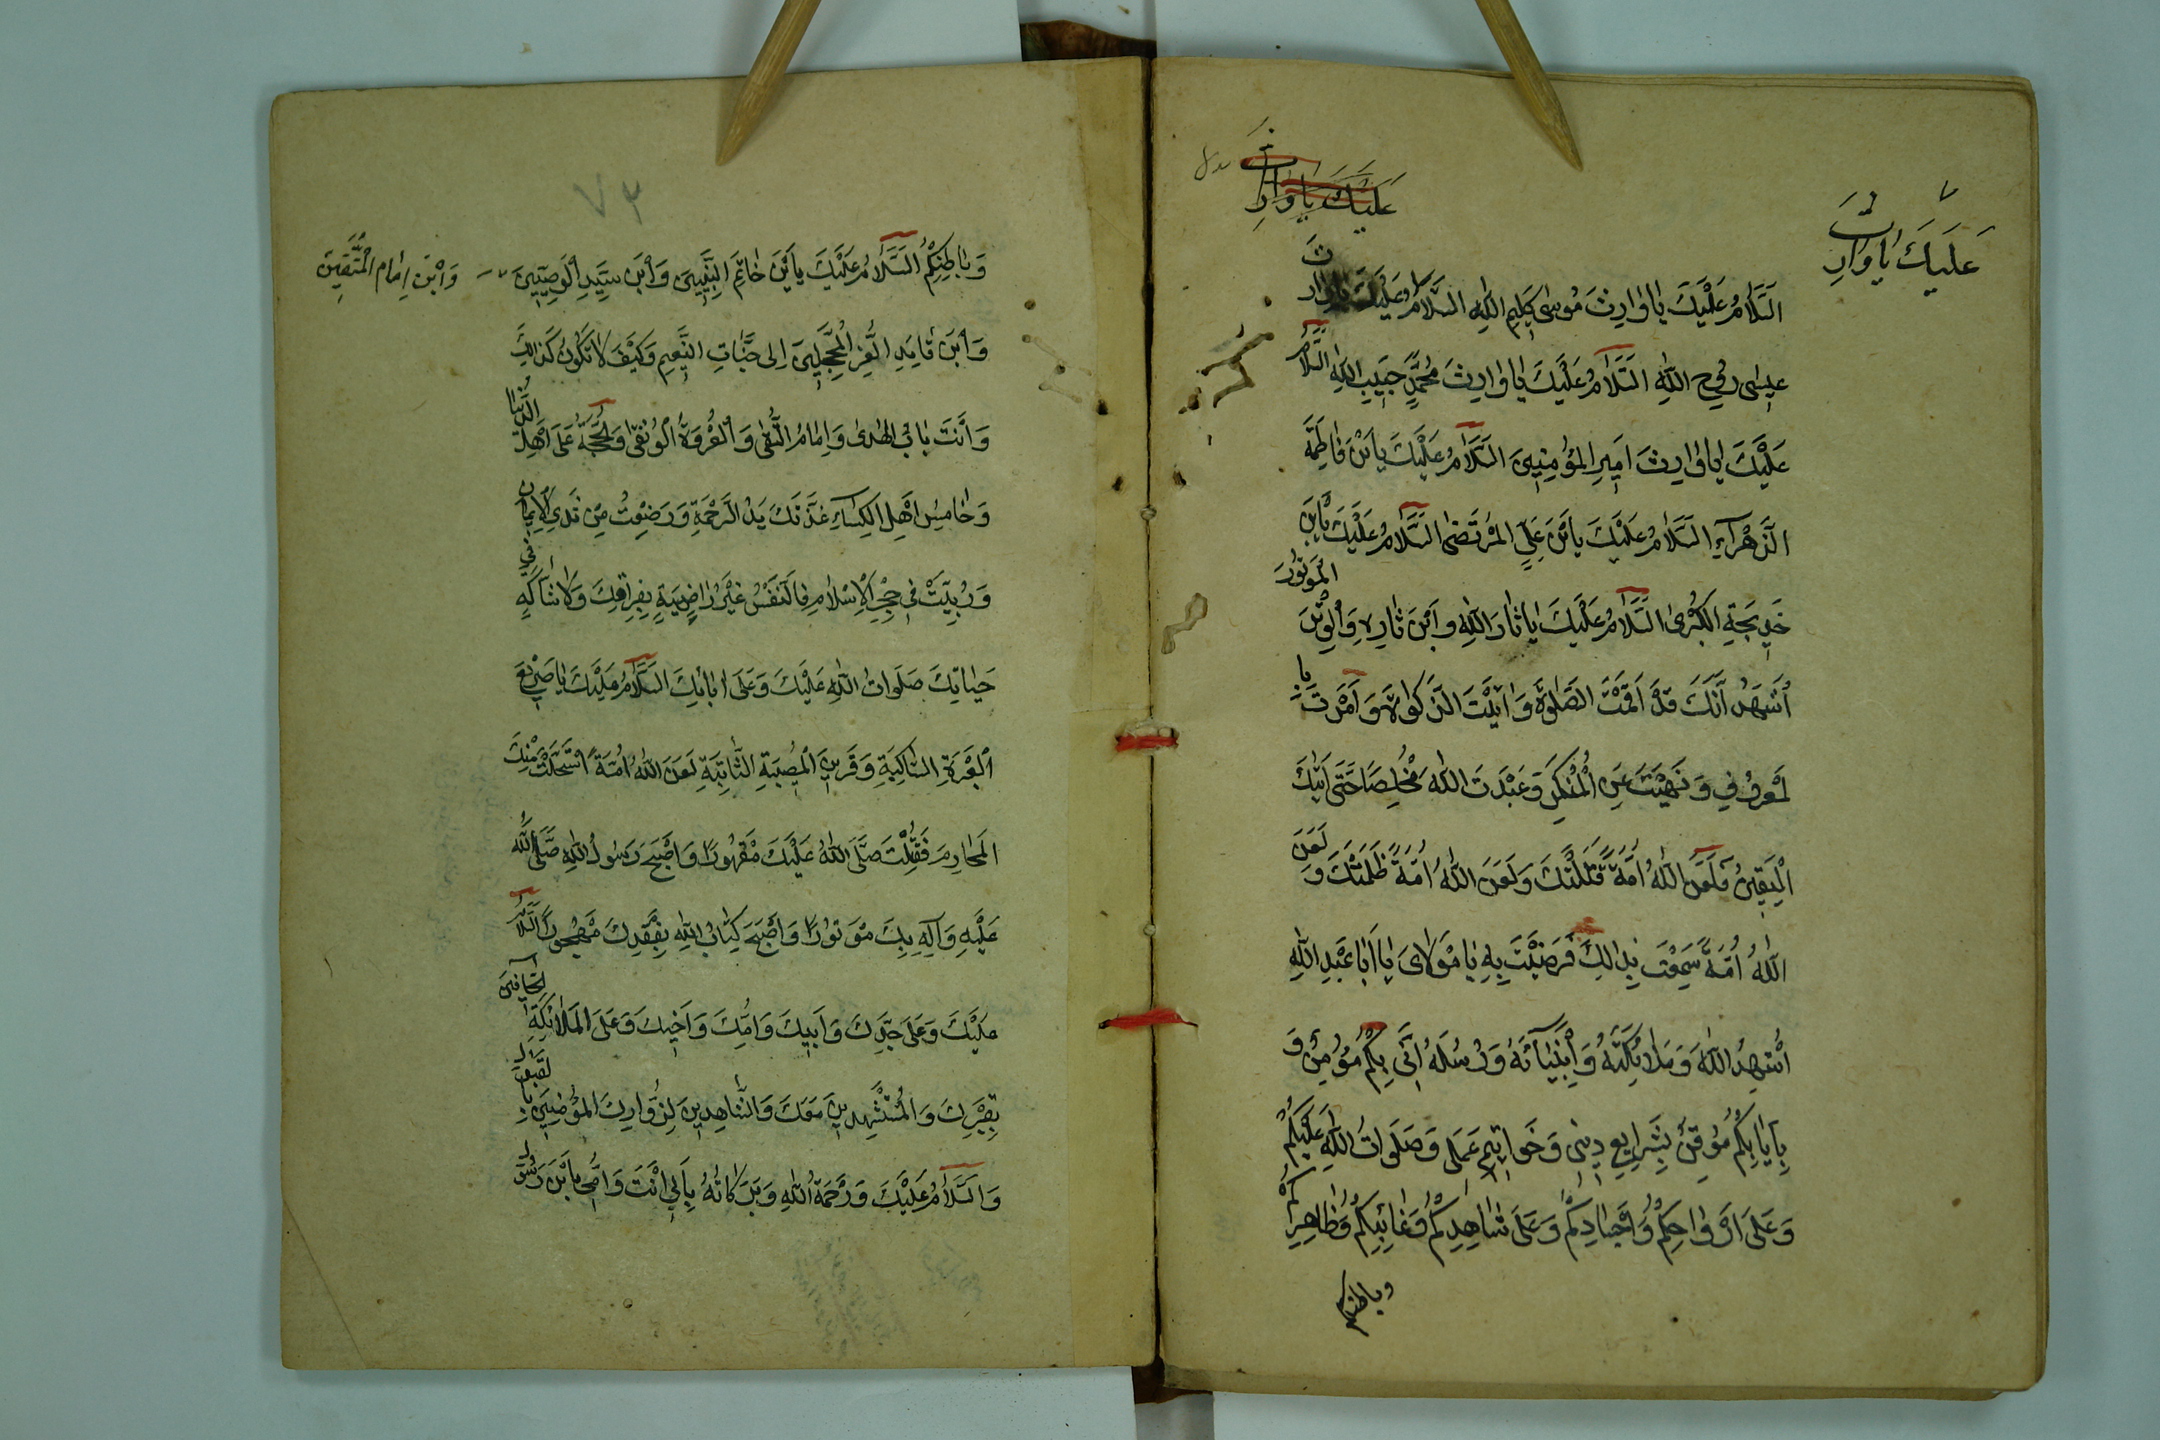 عليك يا وارث
عَلَيْكَ يا وارِثَ
اَلسَّلامُ عَلَيْكَ يا وارِثَ مُوسى كَليمِ اللهِ السَّلامُ عَلَيْكَ يا وارِثَ
عيسى رُوحِ اللهِ السَّلامُ عَلَيْكَ يا وارِثَ مُحَمَّدٍ حَبيبِ اللهِ السَّلامُ
عَلَيْكَ يا وارِثَ اَميرِ المُؤمِنينَ السَّلامُ عَلَيْكَ يابْنَ فاطِمَةَ
الزَّهْرآءِ السَّلامُ عَلَيْكَ يابْنَ عَلِيٍّ المُرْتَضى السَّلامُ عَلَيْكَ يابْنَ
خَديجَةِ الكُبْرى السَّلامُ عَلَيْكَ يا ثارَ اللهِ وابْنَ ثارِهِ وَالْوِتْرَ المَوْتُورَ
اَشْهَدُ اَنَّكَ قَدْ اَقَمْتَ الصَّلوةَ وَاتَيْتَ الزَّكوةَ وَاَمَرْتَ با
لمَعْرُوفِ وَنَهَيْتَ عَنِ المُنْكَرِ وَعَبَدْتَ اللهَ مُخْلِصًا حَتّى اَتيكَ
الْيَقينُ فَلَعَنَ اللهُ اُمَّةً قَتَلَتْكَ وَلَعَنَ اللهُ اُمَّةً ظَلَمَتْكَ وَلَعَنَ
اللهُ اُمَّةً سَمِعَتْ بِذالِكَ فَرَضِيَتْ بِهِ يا مَوْلايَ يا اَبا عَبْدِ اللهِ
اُشْهِدُ اللهَ وَمَلائِكَتَهُ وَاَنْبِيآئَهُ وَرُسُلَهُ اَنّي بِكُمْ مُؤْمِنٌ وَ
بِاِيابِكُمْ مُوقِنٌ بِشَرايِعِ ديني وَخَواتيمِ عَمَلي وَصَلَواتُ اللهِ عَلَيْكُمْ
وَعَلى اَرْواحِكُمْ وَاَجْسادِكُمْ وَعَلى شاهِدِكُمْ وَغائِبِكُمْ وَظاهِرِكُمْ
وباطنكم
٧٣
وَباطِنِكُمْ السَّلامُ عَلَيْكَ يابْنَ خاتَمِ النَّبِيّينَ وَابْنَ سَيِّدِ الوَصِيّينَ وَابْنَ اِمامِ المُتَّقينَ
وَابْنَ قايِدِ الغُرِّ المُحَجَّلينَ اِلى جَنّاتِ النَّعيمِ وَكَيْفَ لا تَكُونُ كَذالِكَ
وَاَنْتَ بابُ الهُدى وَاِمامُ التُّقى وَالْعُرْوَةُ الْوُثْقى وَالحُجَّةُ عَلى اَهْلِ الدُّنْيا
وَخامِسُ اَهْلِ الكِساءِ غَذَّتْكَ يَدُ الرَّحْمَةِ وَرَضِعْتَ مِنْ ثَدْيِ الاِيمانِ
وَرُبّيتَ في حِجْرِ الْاِسْلامِ فَالنَّفْسُ غَيْرُ راضِيَةٍ بِفِراقِكَ وَلا شاكَّةٍ في
حَياتِكَ صَلَواتُ اللهِ عَلَيْكَ وَعَلى ابائِكَ السَّلامُ عَلَيْكَ يا صَريعَ
الْعَبْرَةِ السّاكِبَةِ وَقَرينَ المُصيبَةِ الرّاتِبَةِ لَعَنَ اللهُ اُمَّةً اسْتَحَلَّتْ مِنْكَ
المَحارِمَ فَقُتِلْتَ صَلَّى اللهُ عَلَيْكَ مَقْهُورًا وَاَصْبَحَ رَسُولُ اللهِ صَلَّى اللهُ
عَلَيْهِ وَآلِهِ بِكَ مَوْتُورًا وَاَصْبَحَ كِتابُ اللهِ بِفَقْدِكَ مَهْجُورًا السَّلامُ
عَلَيْكَ وَعَلى جَدِّكَ وَاَبيكَ وَاُمِّكَ وَاَخيكَ وَعَلَى المَلائِكَةِ الحافّينَ
بِقَبْرِكَ وَالْمُسْتَشْهَدينَ مَعَكَ وَالشّاهِدينَ لِزُوّارِكَ المُؤْمِنينَ بِالقَبُولِ
وَالسَّلامُ عَلَيْكَ وَرَحْمَةُ اللهِ وَبَرَكاتُهُ بِاَبي اَنْتَ وَاُمّي يابْنَ رَسُولِ